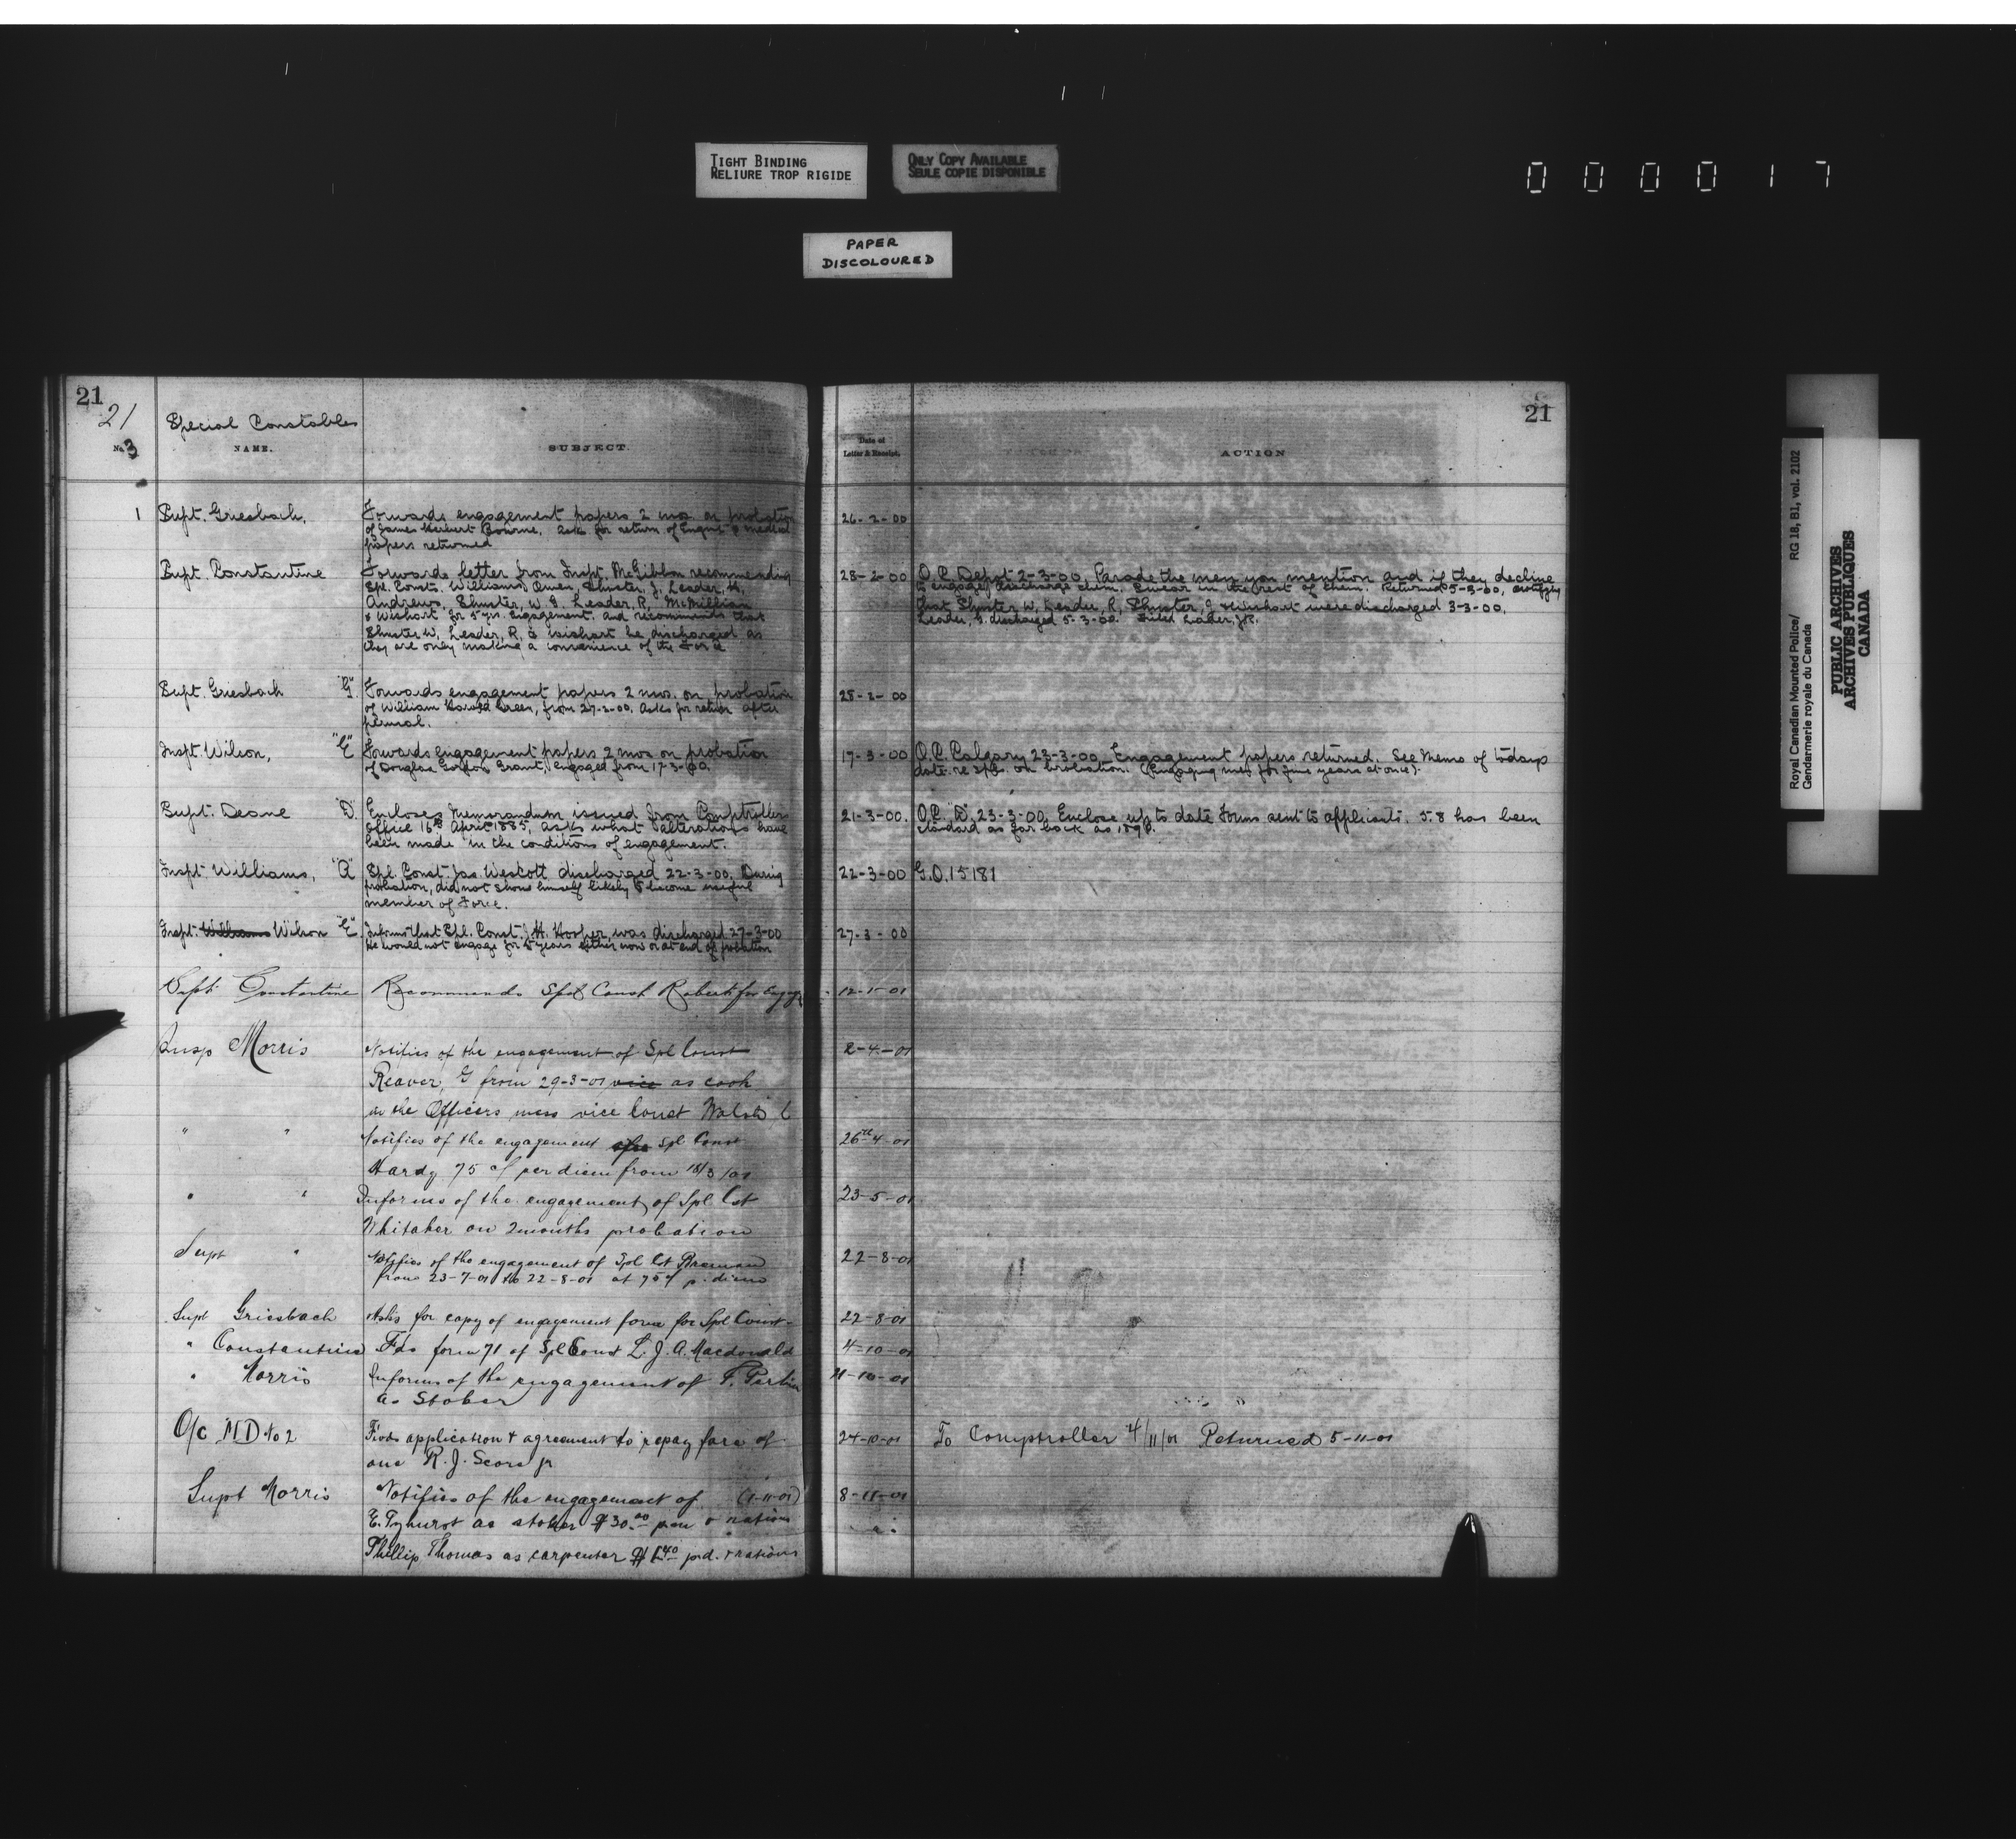 TIGHT BINDING
RELIURE TROP RIGIDE
ONLY COPY AVAILABLE
SEULE COPIE DISPONIBLE
000017
PAPER
DISCOLOURED
21
21
Special Constables
No. 3
NAME.
SUBJECT.
1 Supt. Griesbach,
Forwards engagement papers 2 mos. on probation
of James Herbert Bourne. Asks for return of Engmt & medical
papers returned
Supt. Constantine
Forwards letter from Inspt. McGibbon recommending
Spl. Consts. Williams, Owen, Shuster, J, Leader, H,
Andrews, Shuster, W. G. Leader, R, McMillian
& Wishart for 5 yrs. engagement. and recommends that
Shuster W, Leader, R, & Wishart be discharged as
they are only making a convenience of the Force
Supt. Griesbach "G"
Forwards engagement papers 2 mos. on probation
of William Harold Green, from 27-2-00. Asks for return after
perusal.
Inspt. Wilson, "E"
Forwards engagement papers 2 mos on probation
of Douglas Gordon Grant, engaged from 17-3-00.
Supt. Deane "D"
Encloses Memorandum issued from Comptrollers
office 16th April 1885, asks what alterations have
been made in the conditions of engagement.
Inspt. Williams, "A"
Spl. Const. Jas. Westcott discharged 22-3-00. During
probation, did not show himself likely to become useful
member of Force.
Inspt. Williams Wilson "E"
Informs that Spl. Const. J.H. Hooper, was discharged 27-3-00
He would not engage for 5 years either now or at end of probation
Supt Constantine
Recommends Spl Const Roberts for engag
Insp Morris
Notifies of the engagement of Spl Const
Reaver, G from 29-3-01 vice as cook
in the Officers mess vice Const Walsh
" "
Notifies of the engagement of Spl Const
Hardy 75 ¢ per diem from 18/3/01
" "
Informs of the engagement of Spl Cst
Whitaker on 2 months probation
Supt "
Notifies of the engagement of Spl Cst
from 23-7-01 to 22-8-01 at 75 ¢ p. diem
Supt Griesbach
Asks for copy of engagement form for Spl Const.
" Constantine
Fds form 71 of Spl Const L. J. A. Macdonald
" Morris
Informs of the engagement of F.
as Stoker
O/c MD No 2
Fwds application & agreement to repay fare of
one R. J. Score jr
Supt Morris
Notifies of the engagement of (1-11-01)
E. Tyhurst as stoker $30.00 p.m & rations
Phillip Thomas as carpenter $1.40 p.d. & rations
21
Date of
Letter & Receipt.
ACTION
26-2-00
28-2-00 O.C. Depot 2-3-00, Parade the men you mention and if they decline
to engage, discharge them. Swear in the rest of them. Returned 5-3-00, certifying
that Shuster W, Leader, R, Shuster, J & Wishart were discharged 3-3-00.
Leader, H. discharged 5-3-00.
28-2-00
17-3-00 O.C. Calgary 23-3-00, Engagement papers returned. See Memo of todays
date re Spls. on probation. (Engaging men for five years at once).
21-3-00. O.C. "D" 23-3-00, Enclose up to date Forms sent to applicants. 5.8 has been
standard as far back as
22-3-00 G.O. 15181
27-3-00
12-1-01
2-4-01
26th-4-01
23-5-01
22-8-01
22-8-01
4-10-01
11-10-01
24-10-01 To Comptroller 4/11/01 Returned 5-11-01
8-11-01
Royal Canadian Mounted Police/ RG 18, B1, vol. 2102
Gendarmerie royale du Canada
PUBLIC ARCHIVES
ARCHIVES PUBLIQUES
CANADA